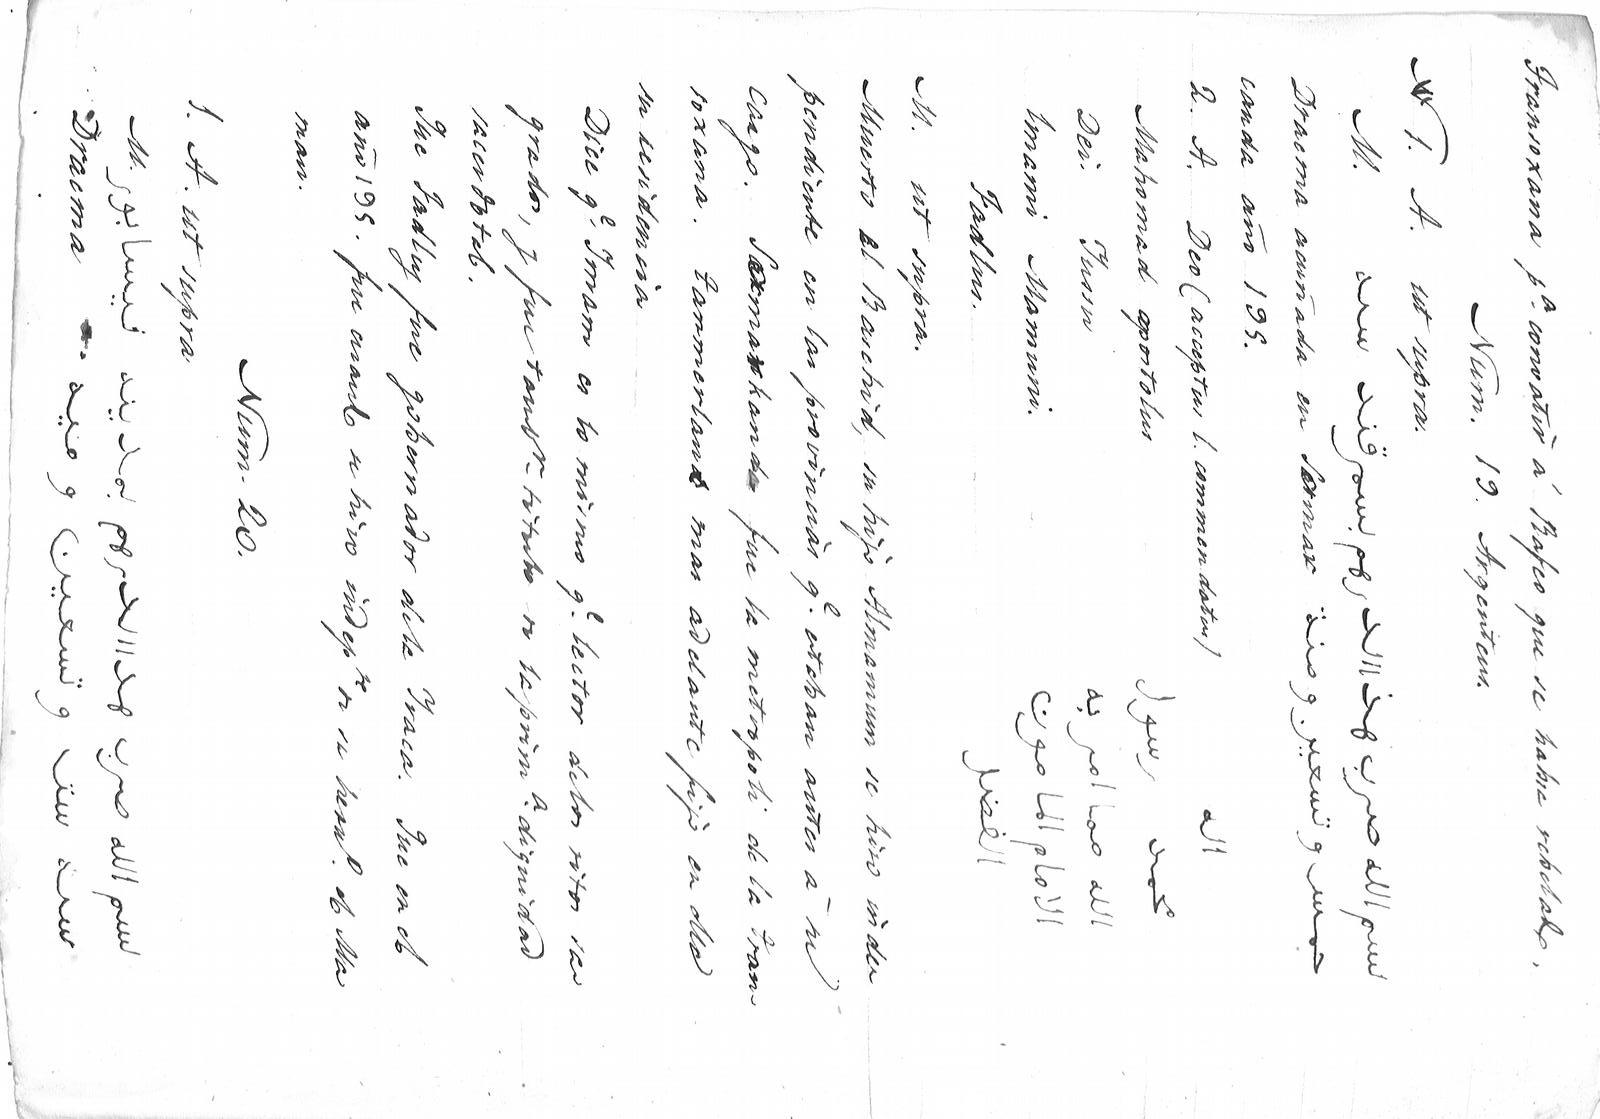 Franoxana pª. comvatir á Rafeo que se habia rebelado.
Num. 19. Argenteus.
1. A. ut supra.
M. بسم الله ضرب هذا الدرهم بسمرقند سنة
خمس و تسعين و مئة Dracma acuñada en Sarmar
canda año 195.
2. A. Deo (acceptus l. commendatus) لله
Mahomad apostolus محمد رسول
Dei. Jussu الله مما امر به
Imami Mamuni. الامام المامون
Fadlus. الفضل
M. ut supra.
Muerto el Raschid, su hijo Almamun se hizo inde
pendiente en las provincias qe. estaban antes à su
cargo. Sarmarkanda fue la metropoli de la Tran
soxana. Tammerland mas adelante fijó en ella
su residencia
Dice qe. Imam es lo mismo qe. lector delos ritos sa
grados, y fue tambn. titulo de la primª. dignidad
sacerdotal.
Que Fadlus fue gobernador dela Yraca. Que en el
año 195. fue cuando se hizo indepte. de su hermº. el Ma
mun.
Num. 20.
1. A. ut supra
M. بسم الله ضرب هذا الدرهم بمدينة نيسابور
سنة ست و تسعين و مئة Dracma